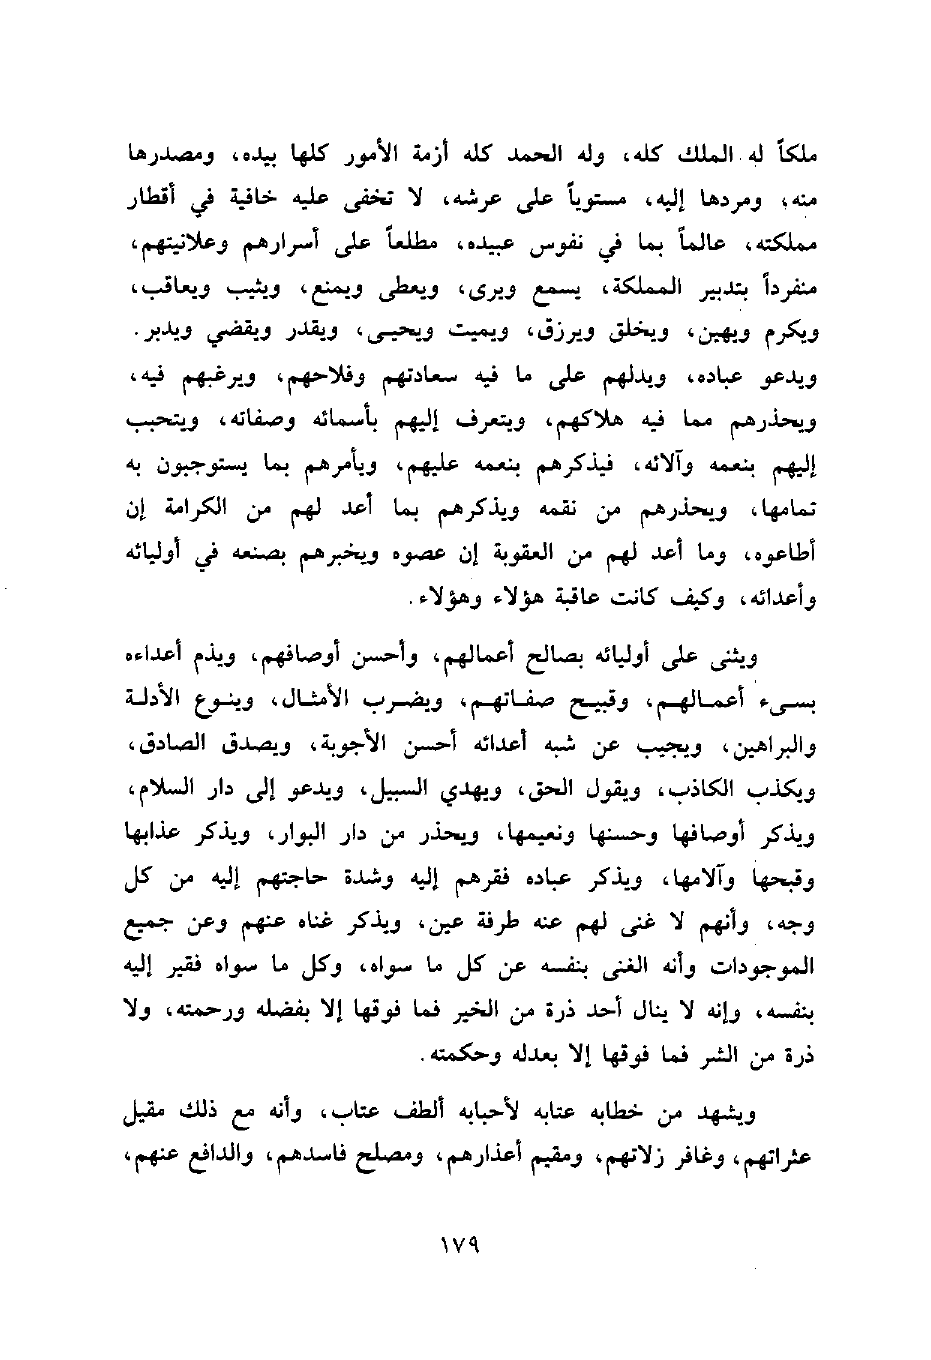 ملكاً له الملك كله، وله الحمد كله أزمة الأمور كلها بيده، ومصدرها
منه، ومردها إليه، مستوياً على عرشه، لا تخفى عليه خافية في أقطار
مملكته، عالماً بما في نفوس عبيده، مطلعاً على أسرارهم وعلانيتهم،
منفرداً بتدبير المملكة، يسمع ويرى، ويعطى ويمنع، ويثيب ويعاقب،
ويكرم ويهين، ويخلق ويرزق، ويميت ويحيى، ويقدر ويقضي ويدبر.
ويدعو عباده، ويدلهم على ما فيه سعادتهم وفلاحهم، ويرغبهم فيه،
ويحذرهم مما فيه هلاكهم، ويتعرف إليهم بأسمائه وصفاته، ويتحبب
إليهم بنعمه وآلائه، فيذكرهم بنعمه عليهم، ويأمرهم بما يستوجبون به
تمامها، ويحذرهم من نقمه ويذكرهم بما أعد لهم من الكرامة إن
أطاعوه، وما أعد لهم من العقوبة إن عصوه ويخبرهم بصنعه في أوليائه
وأعدائه، وكيف كانت عاقبة هؤلاء وهؤلاء.
ويثنى على أوليائه بصالح أعمالهم، وأحسن أوصافهم، ويذم أعداءه
بسىء أعمالهم، وقبيح صفاتهم، ويضرب الأمثال، وينوع الأدلة
والبراهين، ويجيب عن شبه أعدائه أحسن الأجوبة، ويصدق الصادق،
ويكذب الكاذب، ويقول الحق، ويهدي السبيل، ويدعو إلى دار السلام،
ويذكر أوصافها وحسنها ونعيمها، ويحذر من دار البوار، ويذكر عذابها
وقبحها وآلامها، ويذكر عباده فقرهم إليه وشدة حاجتهم إليه من كل
وجه، وأنهم لا غنى لهم عنه طرفة عين، ويذكر غناه عنهم وعن جميع
الموجودات وأنه الغنى بنفسه عن كل ما سواه، وكل ما سواه فقير إليه
بنفسه، وإنه لا ينال أحد ذرة من الخير فما فوقها إلا بفضله ورحمته، ولا
ذرة من الشر فما فوقها إلا بعدله وحكمته.
ويشهد من خطابه عتابه لأحبابه ألطف عتاب، وأنه مع ذلك مقيل
عثراتهم، وغافر زلاتهم، ومقيم أعذارهم، ومصلح فاسدهم، والدافع عنهم،
١٧٩